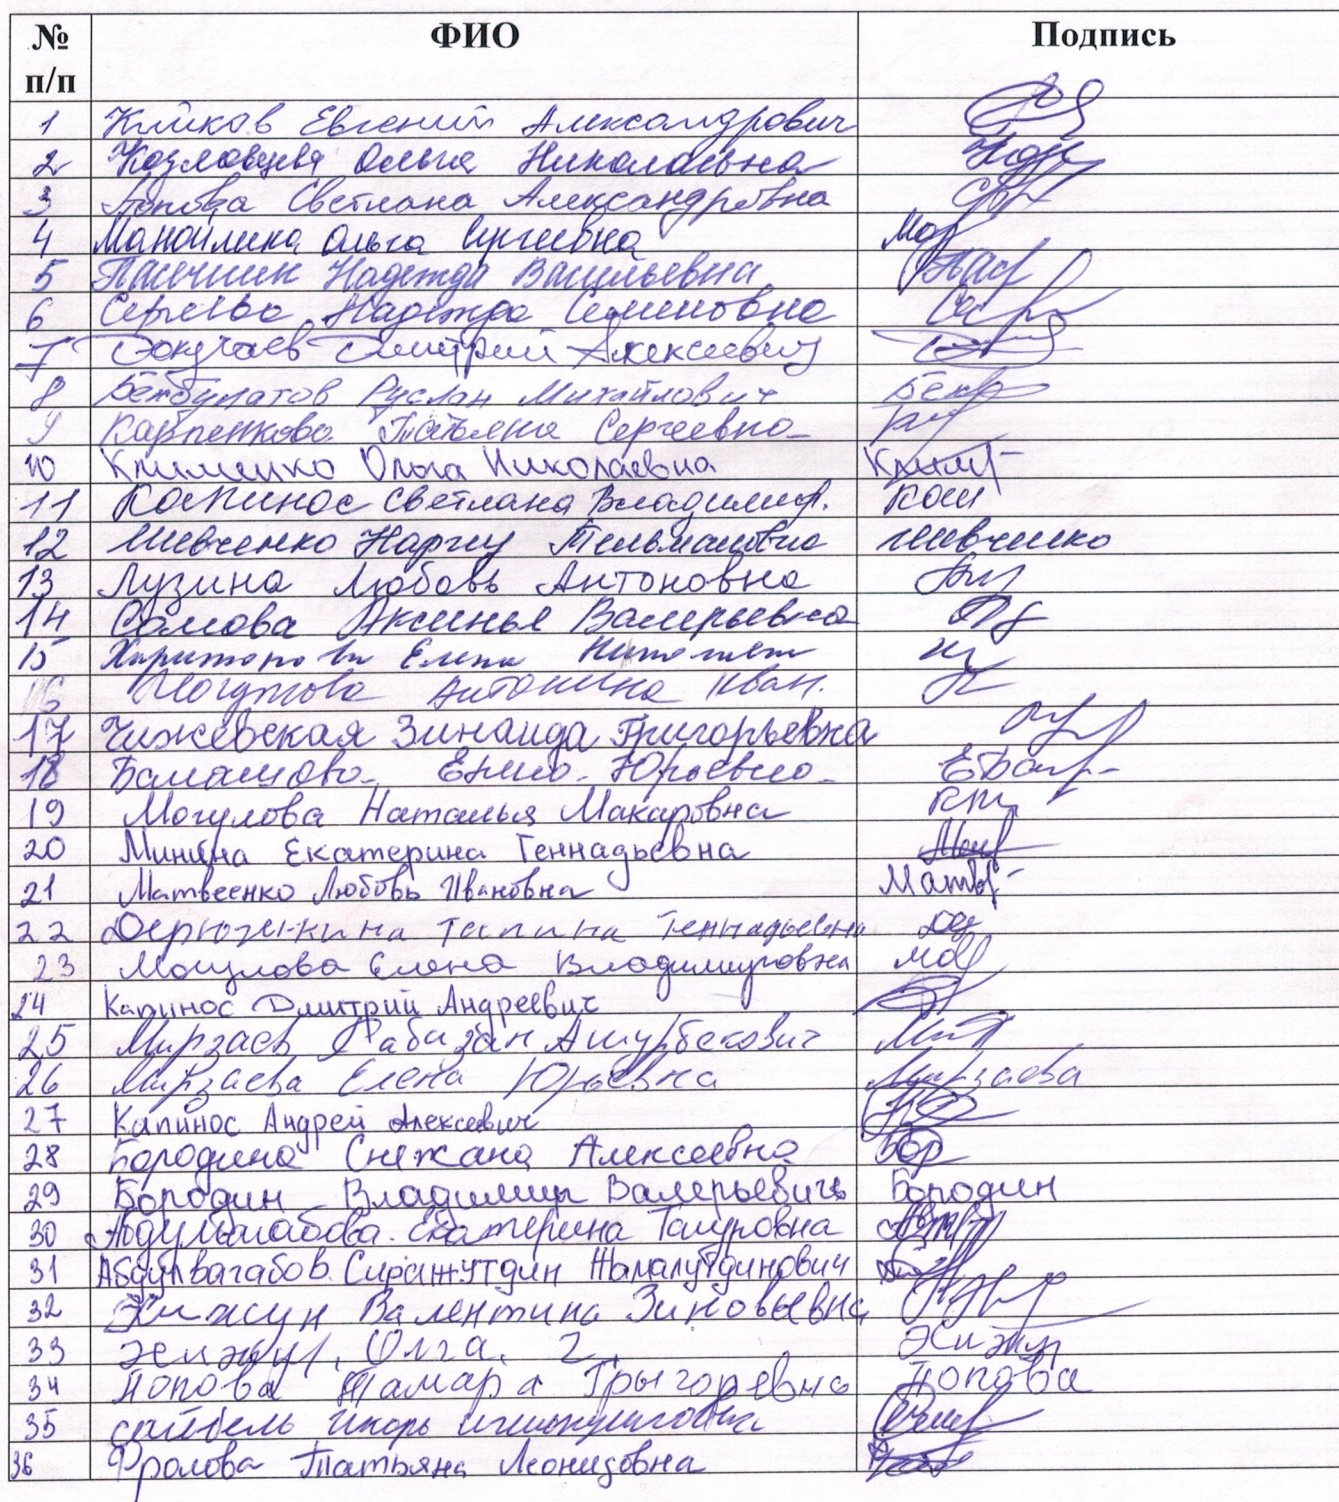 № п/п ФИО Подпись
1 Евгений Александрович
2 Козловцева Ольга Николаевна
3 Попова Светлана Александровна
4 Манойлина Ольга Сергеевна
5 Пасечник Надежда Васильевна
6 Сергеева Надежда Семеновна
7 Докучаев Дмитрий Алексеевич
8 Бекбулатов Руслан Михайлович
9 Карпенкова Татьяна Сергеевна
10 Клименко Ольга Николаевна
11 Капинос Светлана Владимир.
12 Шевченко Наргиз Тельмановна Шевченко
13 Лузина Любовь Антоновна
14 Сомова Аксинья Валерьевна
15 Харитонова Елена
16 Могутова Антонина Иван.
17 Чижевская Зинаида Григорьевна
18 Балашова Елена Юрьевна
19 Могулова Наталья Макаровна
20 Минина Екатерина Геннадьевна
21 Матвеенко Любовь Ивановна
22 Дерюжкина Галина Геннадьевна
23 Могулова Елена Владимировна
24 Капинос Дмитрий Андреевич
25 Мирзаев Рабазан Ашурбекович
26 Мирзаева Елена Юрьевна Мирзаева
27 Капинос Андрей Алексеевич
28 Бородина Снежана Алексеевна Бор
29 Бородин Владимир Валерьевичь Бородин
30 Екатерина Тагировна
31 Абдулвагабов Сиражутдин Жамалутдинович
32 Валентина Зиновьевна
33 Олга. Г.
34 Попова Тамара Грыгоревна Попова
35 Игорь
36 Фролова Татьяна Леонидовна